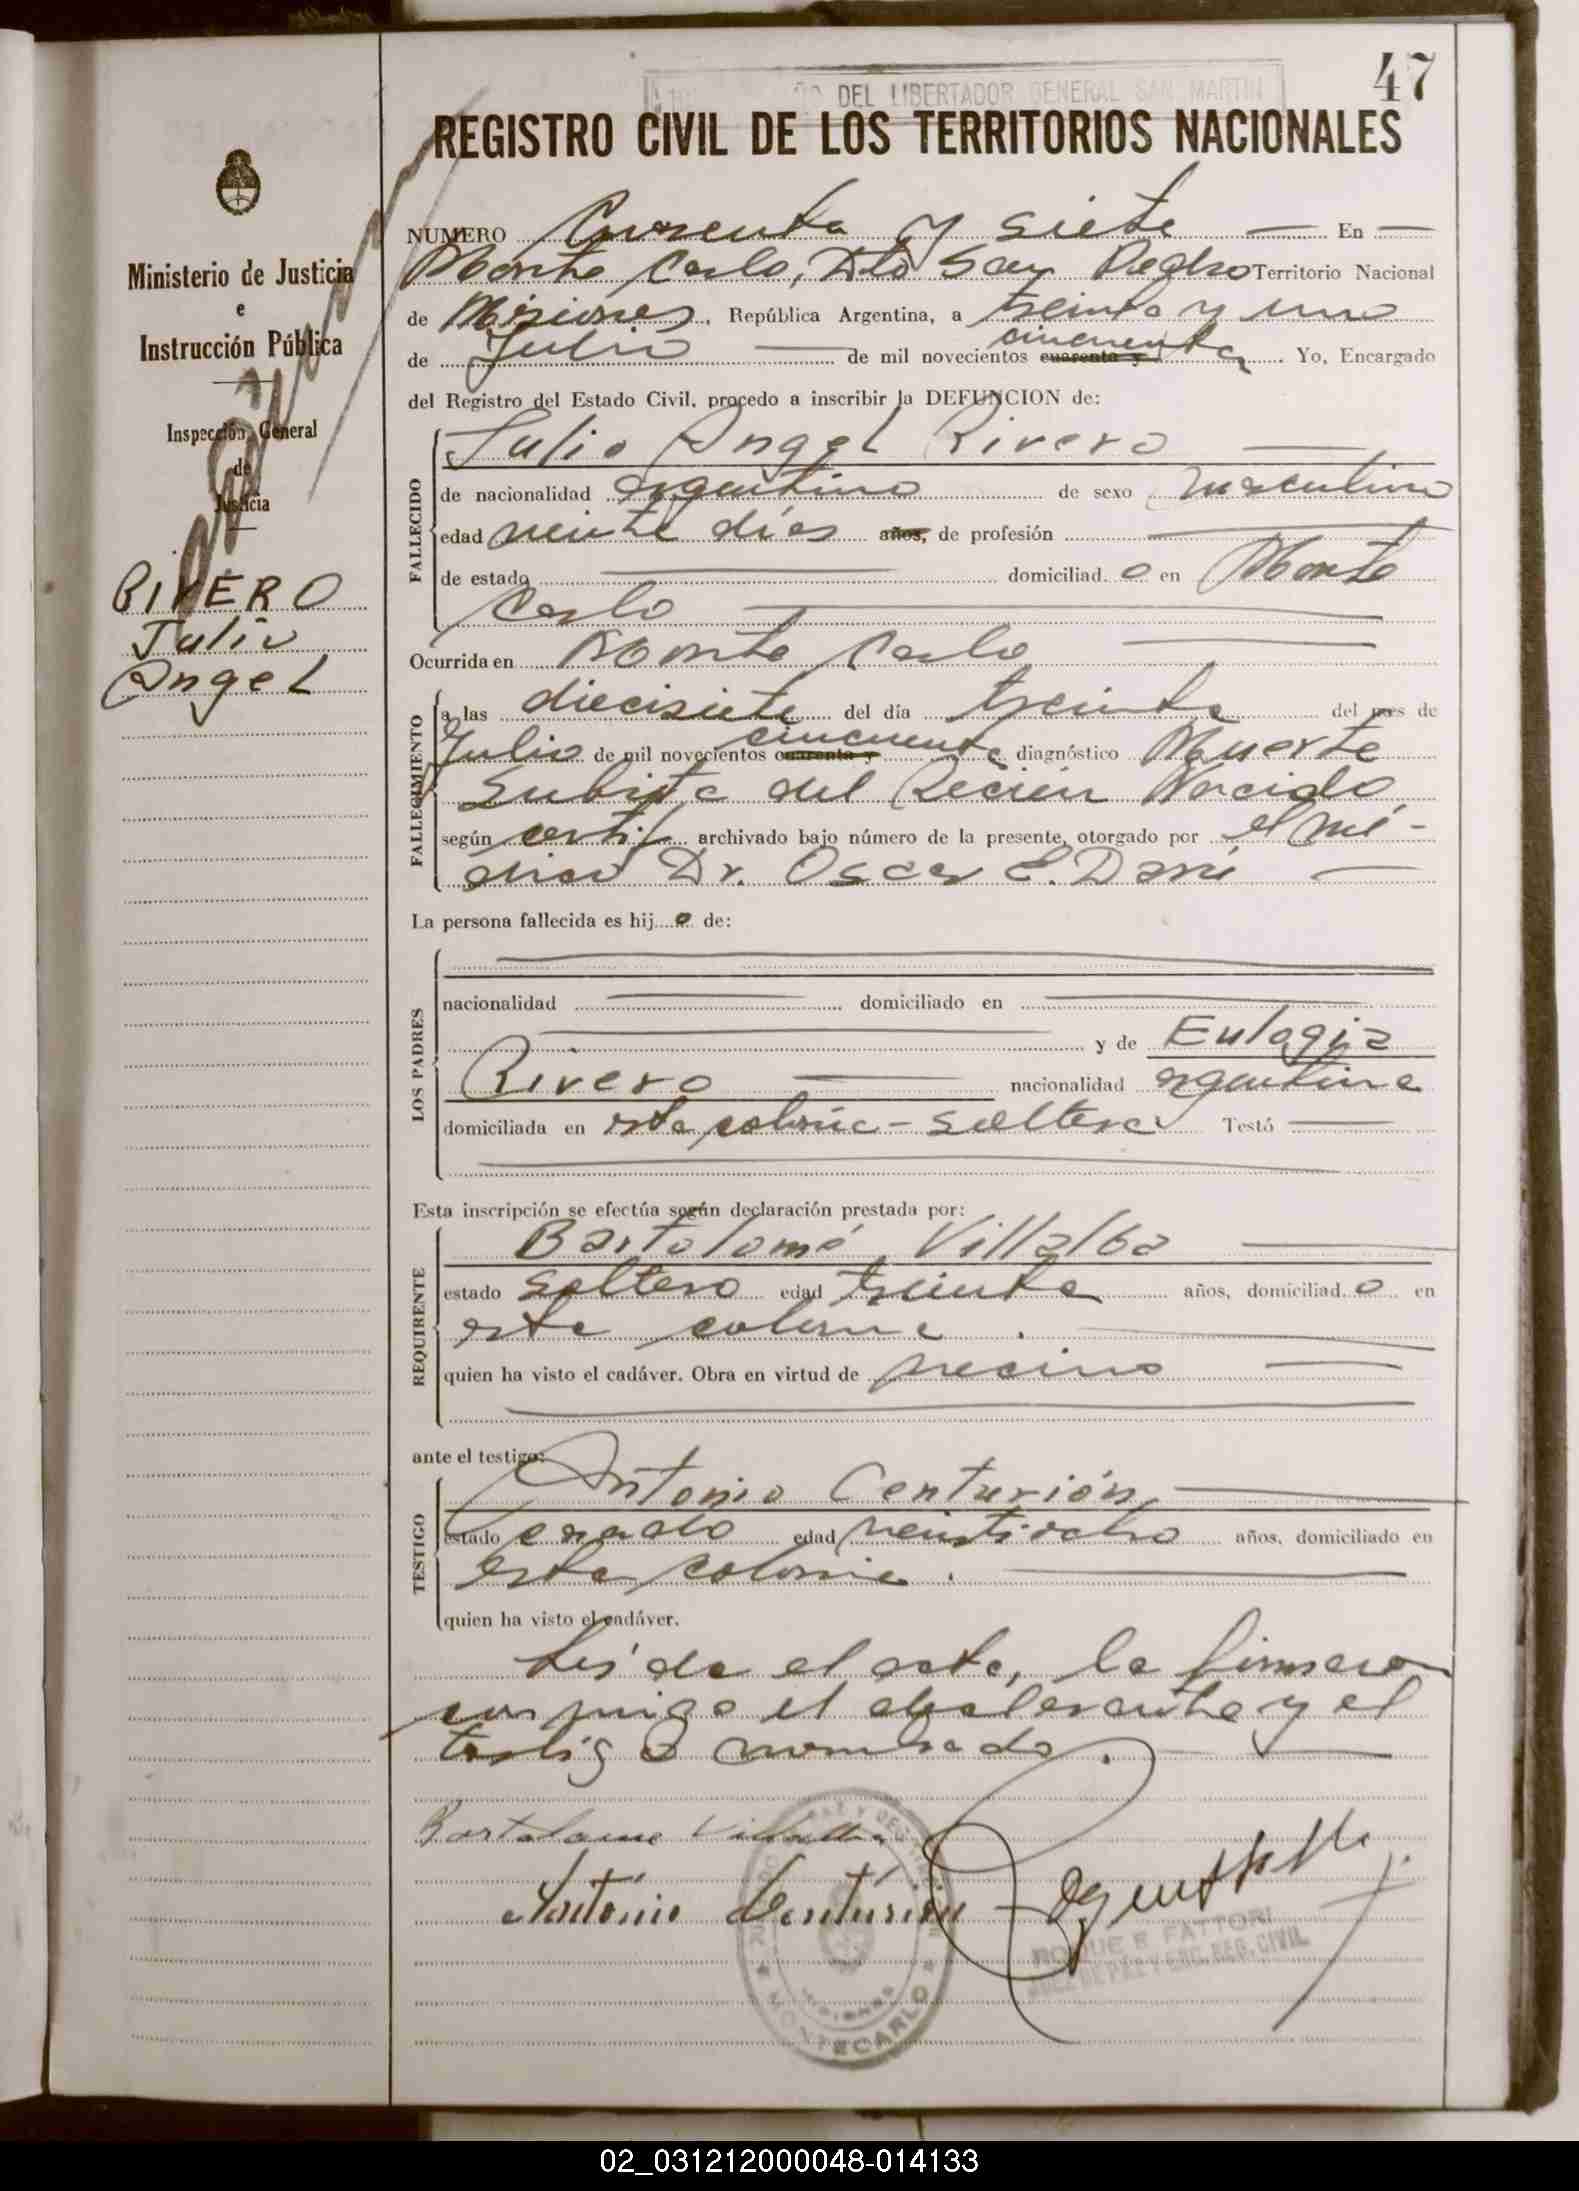 47
DEL LIBERTADOR GENERAL SAN MARTIN
REGISTRO CIVIL DE LOS TERRITORIOS NACIONALES
Ministerio de Justicia
e
Instrucción Pública
Inspección General
de
Justicia
RIVERO
Julio
Angel
NUMERO Cuarenta y siete En
Monte Carlo, Dto San Pedro Territorio Nacional
de Misiones, República Argentina, a treinta y uno
de Julio de mil novecientos cuarenta y cincuenta. Yo, Encargado
del Registro del Estado Civil, procedo a inscribir la DEFUNCION de:
FALLECIDO
Julio Angel Rivero
de nacionalidad argentino de sexo masculino
edad veinte días años, de profesión
de estado domiciliad o en Monte
Carlo
Ocurrida en Monte Carlo
FALLECIMIENTO
a las diecisiete del día treinta del mes de
Julio de mil novecientos cuarenta y cincuenta diagnóstico Muerte
Subita del Recien Nacido
según certif. archivado bajo número de la presente, otorgado por el mé-
dico Dr. Oscar E. Darú
La persona fallecida es hij o de:
LOS PADRES
nacionalidad domiciliado en
y de Eulogia
Rivero nacionalidad argentina
domiciliada en esta colonia - soltera Testó
Esta inscripción se efectúa según declaración prestada por:
REQUIRENTE
Bartolomé Villalba
estado soltero edad treinta años, domiciliad o en
esta colonia.
quien ha visto el cadáver. Obra en virtud de vecino
ante el testigo:
TESTIGO
Antonio Centurión
estado casado edad veintiocho años, domiciliado en
esta colonia.
quien ha visto el cadáver.
Leída el acta, la firmaron
conmigo el declarante y el
testigo nombrado.
Bartolome Villalba
Antonio Centurión
ROQUE E FATTORI
JUEZ DE PAZ Y ENC. REG. CIVIL
MISIONES
MONTECARLO
02_031212000048-014133